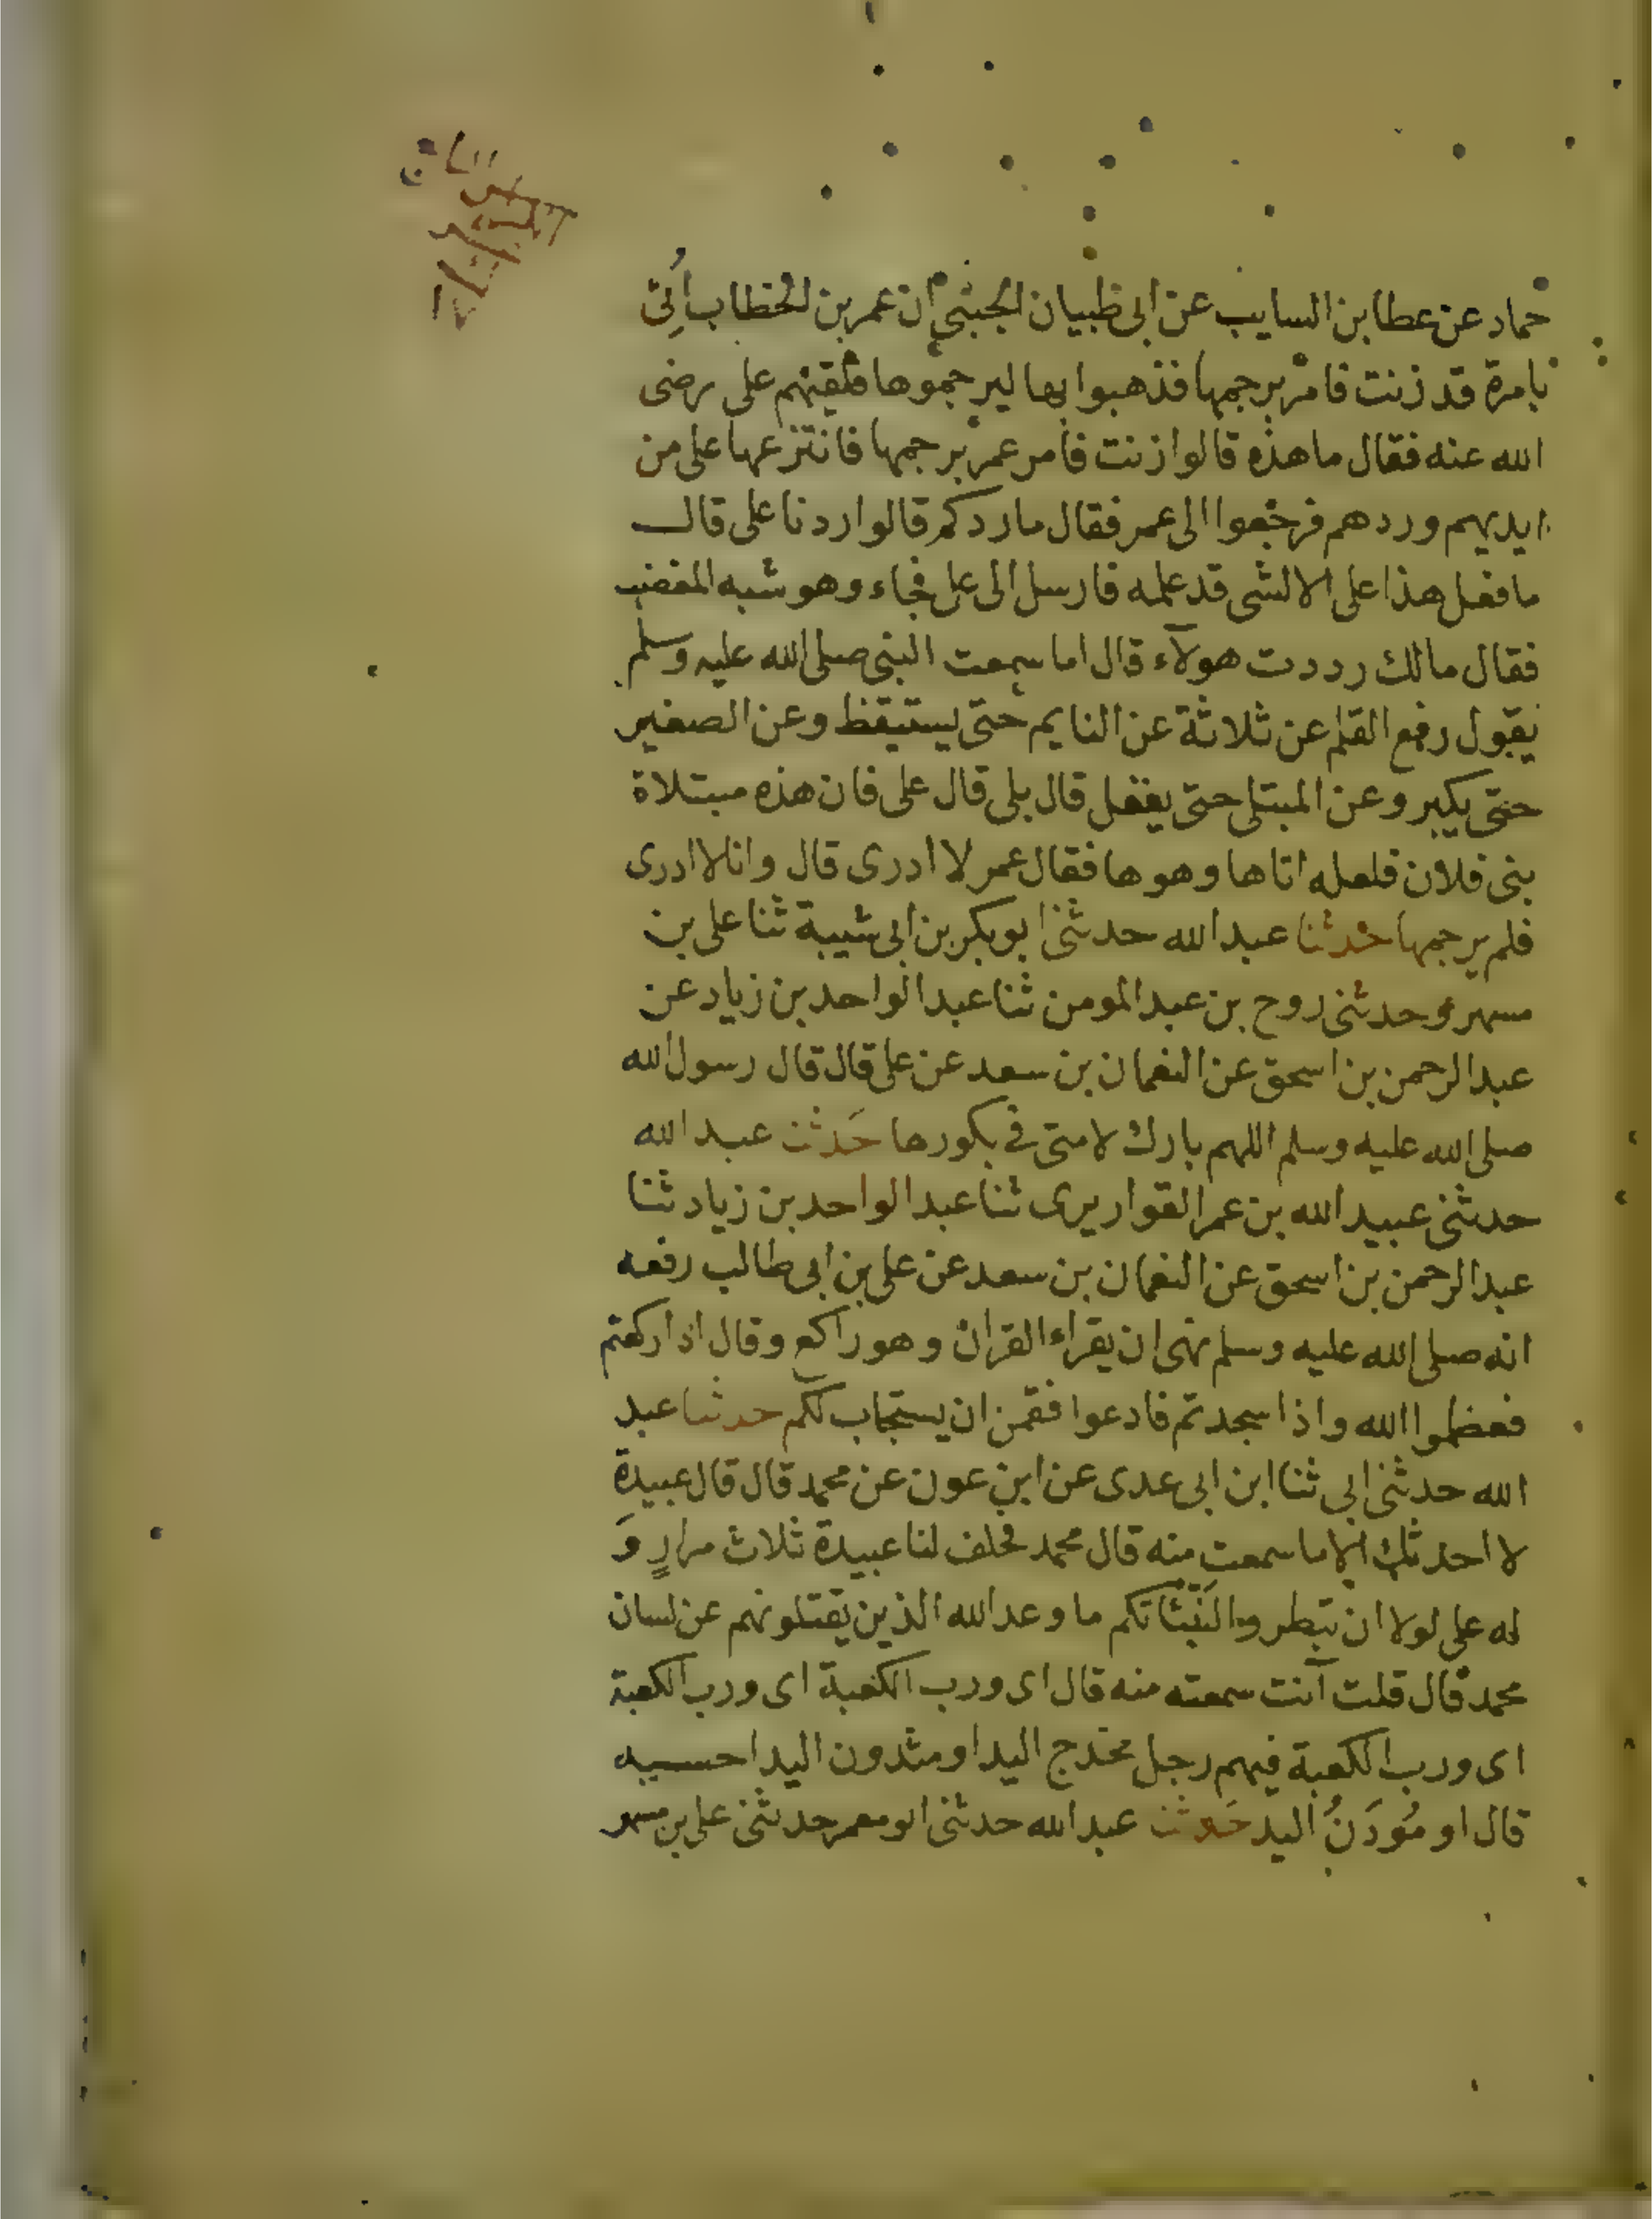 حماد عن عطا بن السايب عن ابى ظبيان الجبنى ان عمر بن الخطاب اُتِىَ
بامرة قد زنت فامر برجمها فذهبوا بها ليرجموها فلقيهم على رضى
الله عنه فقال ما هذه قالوا زنت فامر عمر برجمها فانتزعها على من
ايديهم وردهم فرجعوا الى عمر فقال ما ردكم قالوا ردنا على قال
ما فعل هذا على الا لشى قد علمه فارسل الى على فجاء وهو شبه المغضب
فقال مالك رددت هولآء قال اما سمعت النبى صلى الله عليه وسلم
يقول رفع القلم عن ثلاثة عن النايم حتى يستيقظ وعن الصغير
حتى يكبر وعن المبتلى حتى يعقل قال بلى قال على فان هذه مبتلاة
بنى فلان فلعله اتاها وهو ها فقال عمر لا ادرى قال وانا لا ادرى
فلم يرجمها حدثنا عبد الله حدثنى ابو بكر بن ابى شيبة ثنا على بن
مسهر وحدثنى روح بن عبد المومن ثنا عبد الواحد بن زياد عن
عبد الرحمن بن اسحق عن النعمان بن سعد عن على قال قال رسول الله
صلى الله عليه وسلم اللهم بارك لامتى فى بكورها حَدثنا عبد الله
حدثنى عبيد الله بن عمر القواريرى ثنا عبد الواحد بن زياد ثنا
عبد الرحمن بن اسحق عن النعمان بن سعد عن على بن ابى طالب رفعه
انه صلى الله عليه وسلم نهى ان يقراء القران وهو راكع وقال اذا ركعتم
فعظموا الله واذا سجدتم فادعوا فقمن ان يستجاب لكم حدثنا عبد
الله حدثنى ابى ثنا ابن ابى عدى عن ابن عون عن محمد قال قال عبيدة
لا احدثك الا ما سمعت منه قال محمد فحلف لنا عبيدة ثلاث مرارٍ وَ
له على لولا ان تبطروا لَنَبَّئاتكم ما وعد الله الذين يقتلونهم عن لسان
محمد قال قلت آنت سمعته منه قال اى ورب الكعبة اى ورب الكعبة
اى ورب الكعبة فيهم رجل مخدج اليد او مثدون اليد احسبه
قال او مُودَنُ اليد حَدثنا عبد الله حدثنى ابو معمر حدثنى على بن مسهر